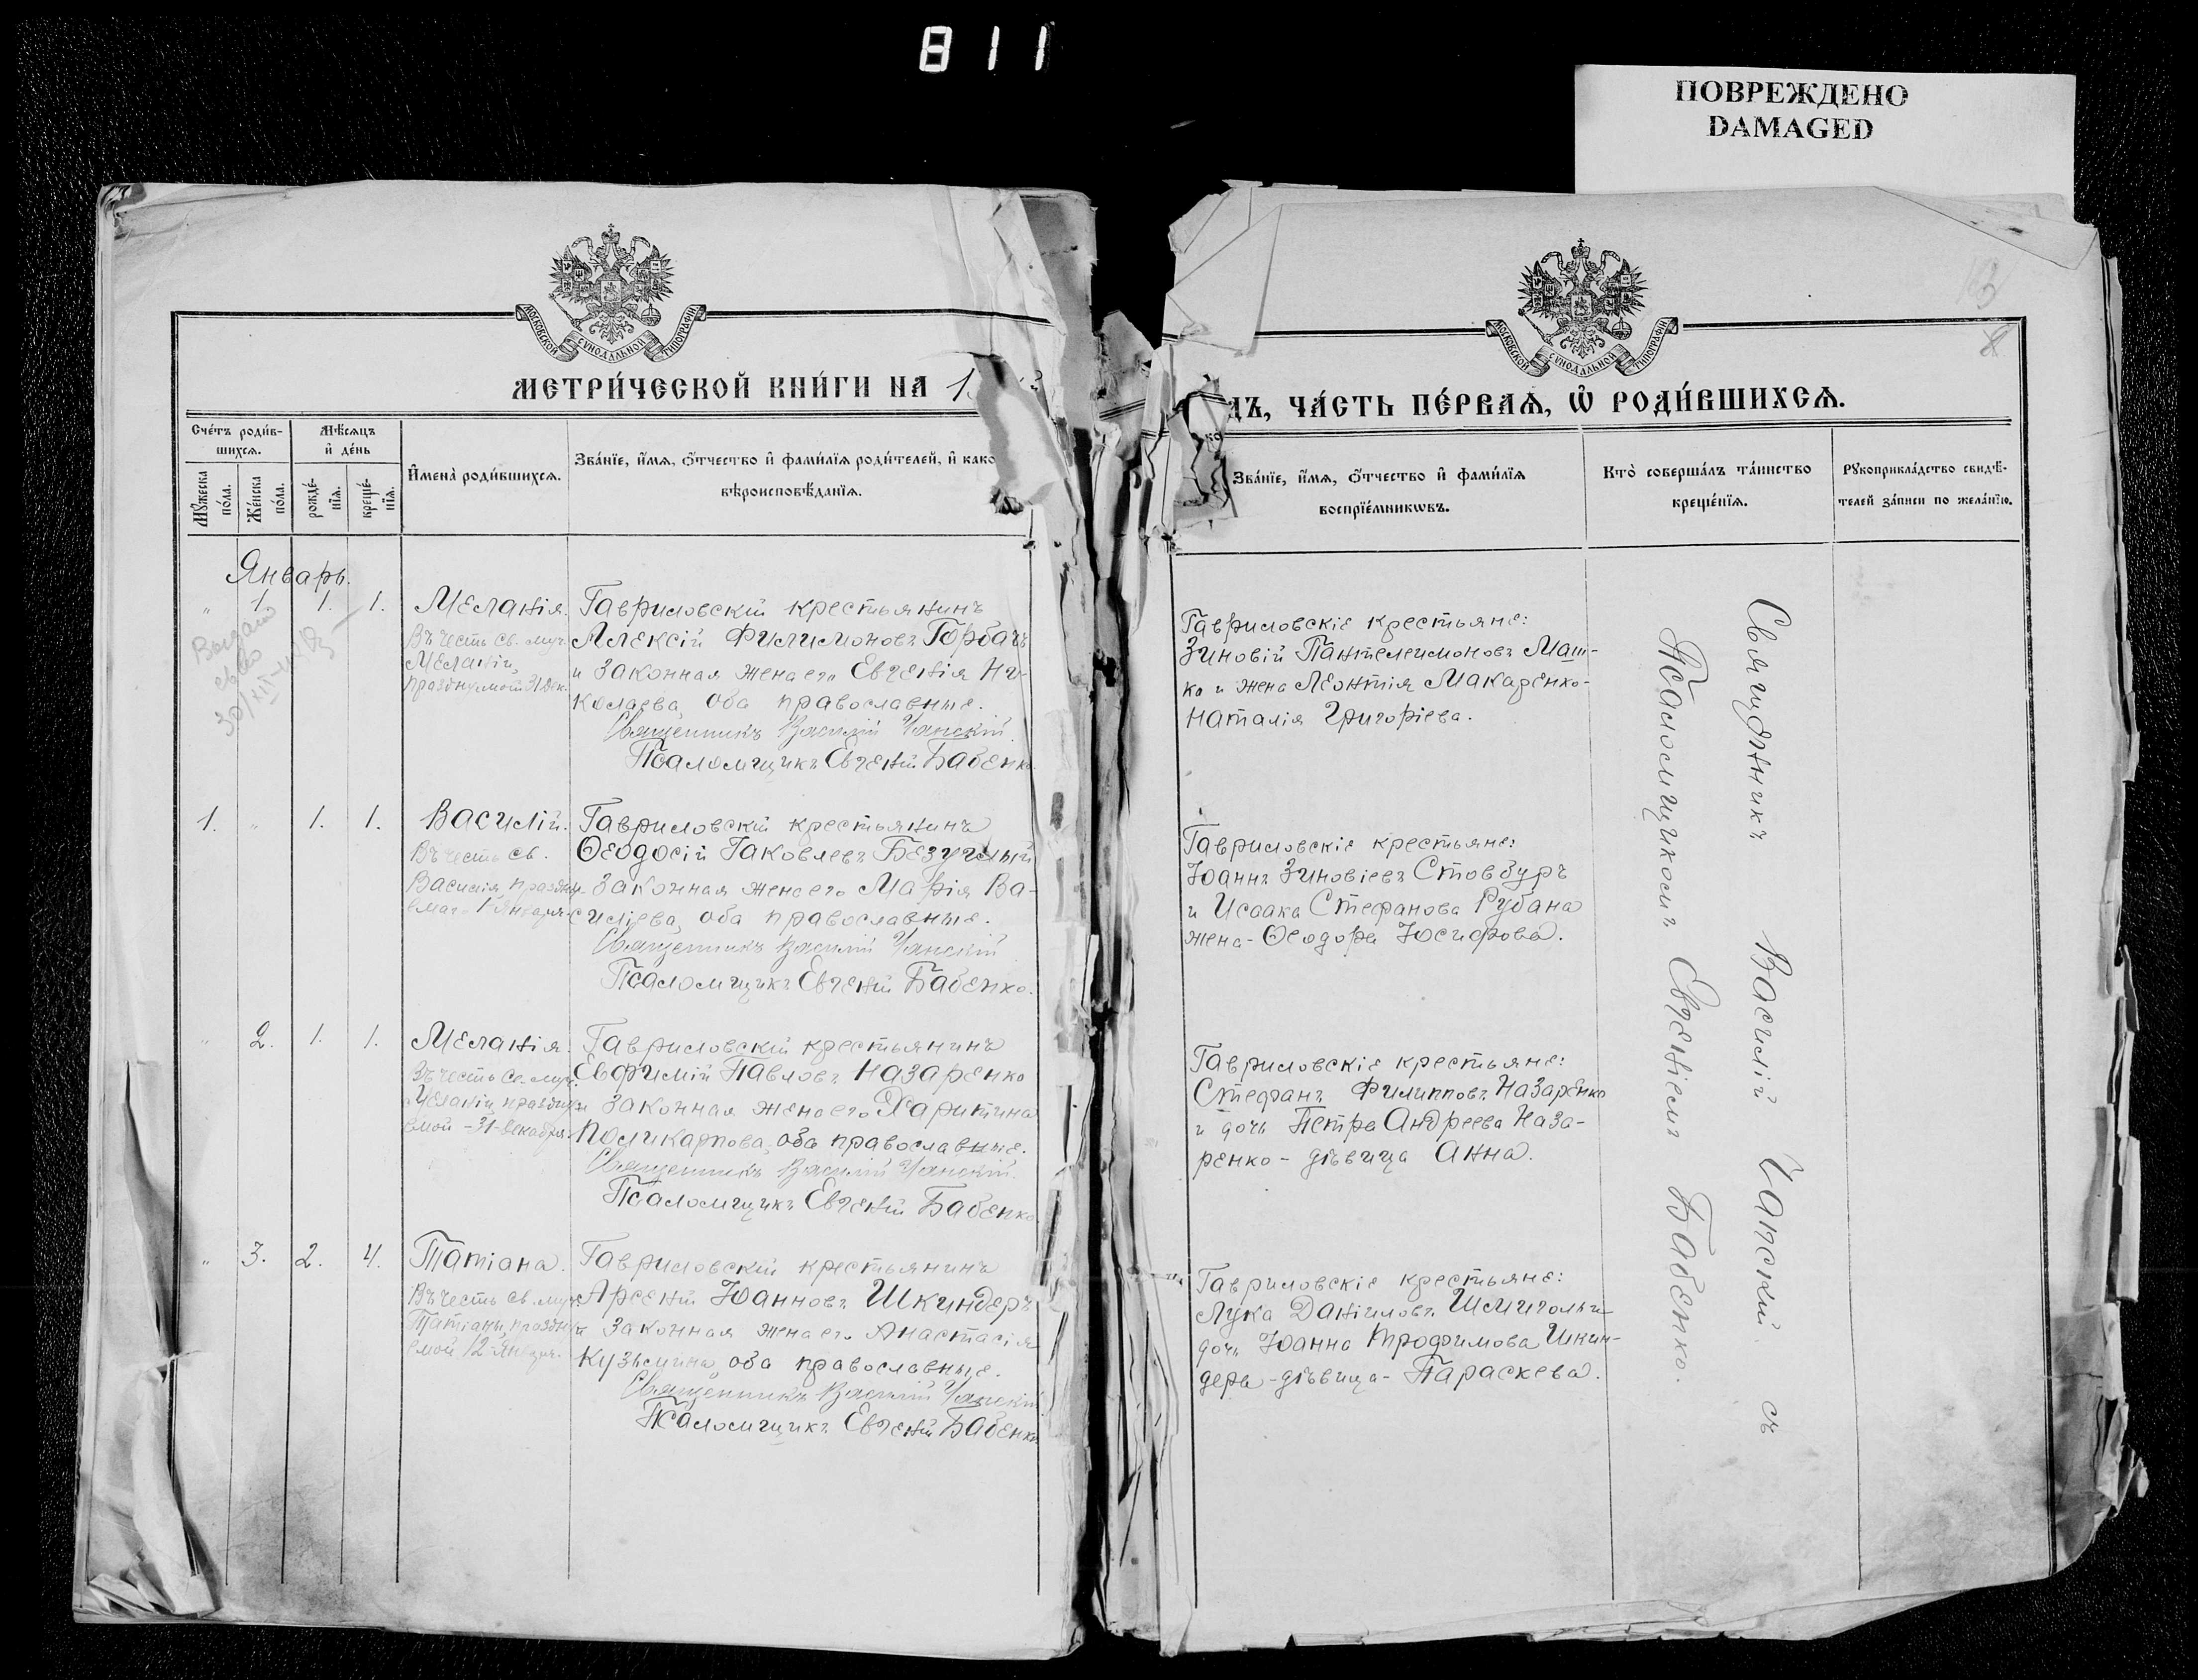 811
ПОВРЕЖДЕНО
DAMAGED
МОСКОВСКОЙ СѴНОДАЛЬНОЙ ТИПОГРАФІИ
МЕТРИ́ЧЕСКОЙ КНИ́ГИ НА 1
Сче́тъ роди́в-
шихсѧ.
Мѣ́сѧцъ
и҆ де́нь
Мꙋ́жеска
по́ла.
Же́нска
по́ла.
рожде́-
нїѧ.
креще́-
нїѧ.
И҆мена̀ роди́вшихсѧ.
Зва́нїе, и҆́мѧ, ѻ҆́тчество и҆ фами́лїѧ роди́телей, и҆ како
вѣроисповѣ́данїѧ.
Январь.
„ 1. 1. 1.
Меланія.
Въ честь св. муч.
Меланіи,
празднуемой 31 дек.
Гавриловскій крестьянинъ
Алексій Филимоновъ Горбачъ
и законная жена его Евгенія Ни-
колаева, оба православные.
Священникъ Василій Чанскій.
Псаломщикъ Евгеній Бабенко
1. „ 1. 1.
Василій.
Въ честь св.
Василія праздну-
емаго 1 января.
Гавриловскій крестьянинъ
Ѳеодосій Іаковлевъ Безуглый
законная жена его Марія Ва-
силіева, оба православные.
Священникъ Василій Чанскій
Псаломщикъ Евгеній Бабенко.
„ 2. 1. 1.
Меланія.
Въ честь св. муч.
Меланіи, праздну-
емой - 31 декабря.
Гавриловскій крестьянинъ
Евфимій Павловъ Назаренко
и законная жена его Харитина
Поликарпова, оба православные.
Священникъ Василій Чанскій.
Псаломщикъ Евгеній Бабенко
„ 3. 2. 4.
Татіана.
Въ честь св. муч.
Татіаны, праздну-
емой 12 января.
Гавриловскій крестьянинъ
Арсеній Іоанновъ Шкиндеръ
и законная жена его Анастасія
Кузьмина, оба православные.
Священникъ Василій Чанскій
Псаломщикъ Евгеній Бабенко
МОСКОВСКОЙ СѴНОДАЛЬНОЙ ТИПОГРАФІИ
дъ, ЧА́СТЬ ПЕ́РВАѦ, Ѡ҆ РОДИ́ВШИХСѦ.
Зва́нїе, и҆́мѧ, ѻ҆́тчество и҆ фами́лїѧ
воспрїе́мникѡвъ.
Кто̀ соверша́лъ та́инство
креще́нїѧ.
Рꙋкоприкла́дство свидѣ́-
телей за́писи по жела́нїю.
Гавриловскіе крестьяне:
Зиновій Пантелеимоновъ Маш-
ко и жена Леонтія Макаренко-
Наталія Григоріева.
Гавриловскіе крестьяне:
Іоаннъ Зиновіевъ Стовбуръ
и Исаака Стефанова Рубана
жена - Ѳеодора Іосифова.
Гавриловскіе крестьяне:
Стефанъ Филипповъ Назаренко
и дочь Петра Андреева Наза-
ренко - дѣвица Анна.
Гавриловскіе крестьяне:
Лука Даніиловъ и
дочь Іоанна Трофимова Шкин-
дера - дѣвица - Параскева.
Священникъ Василій Чанскій съ
Псаломщикомъ Евгеніемъ Бабенко.